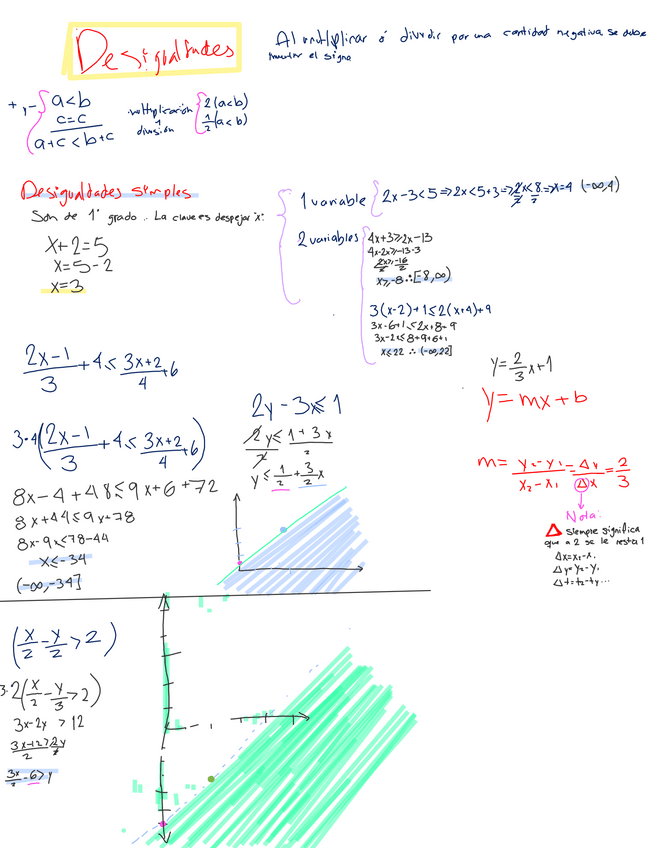 Desigualdades
Al multiplicar ó dividir por una cantidad negativa se debe
mutar el signo
+ y -
a<b
c=c
a+c<b+c
multiplicación
y
división
2(a<b)
1/2(a<b)
Desigualdades simples
Son de 1° grado.. La clave es despejar "x":
x+2=5
x=5-2
x=3
1 variable
2x-3<5 => 2x<5+3 => 2x/2<8/2 => x=4 (-∞,4)
2 variables
4x+3≥2x-13
4x-2x≥-13-3
2x/2≥-16/2
x≥-8 ∴ [-8,∞)
3(x-2)+1≤2(x+4)+9
3x-6+1≤2x+8+9
3x-2x≤8+9+6+1
x≤22 ∴ (-∞,22]
(2x-1)/3+4≤(3x+2)/4+6
3·4((2x-1)/3+4≤(3x+2)/4+6)
8x-4+48≤9x+6+72
8x+44≤9x+78
8x-9x≤78-44
x≤-34
(-∞,-34]
2y-3x≤1
2y/2≤(1+3x)/2
y≤1/2+3/2x
y=2/3x+1
y=mx+b
m=(y₂-y₁)/(x₂-x₁)=Δy/Δx=2/3
Nota:
Δ siempre significa
que a 2 se le resta 1
Δx=x₂-x₁
Δy=y₂-y₁
Δt=t₂-t₁...
(x/2-y/2>2)
3·2(x/2-y/3>2)
3x-2y>12
(3x-12)/2>2y/2
3x/2-6>y